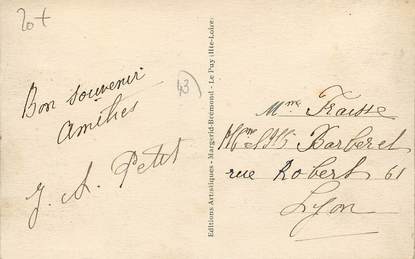 20+
43
Bon souvenir
Amitiés
J. A. Petit
Editions Artistiques - Margerid-Brémond - Le Puy (Hte-Loire)
Mme Fraisse
Barberet
rue Robert 61
Lyon